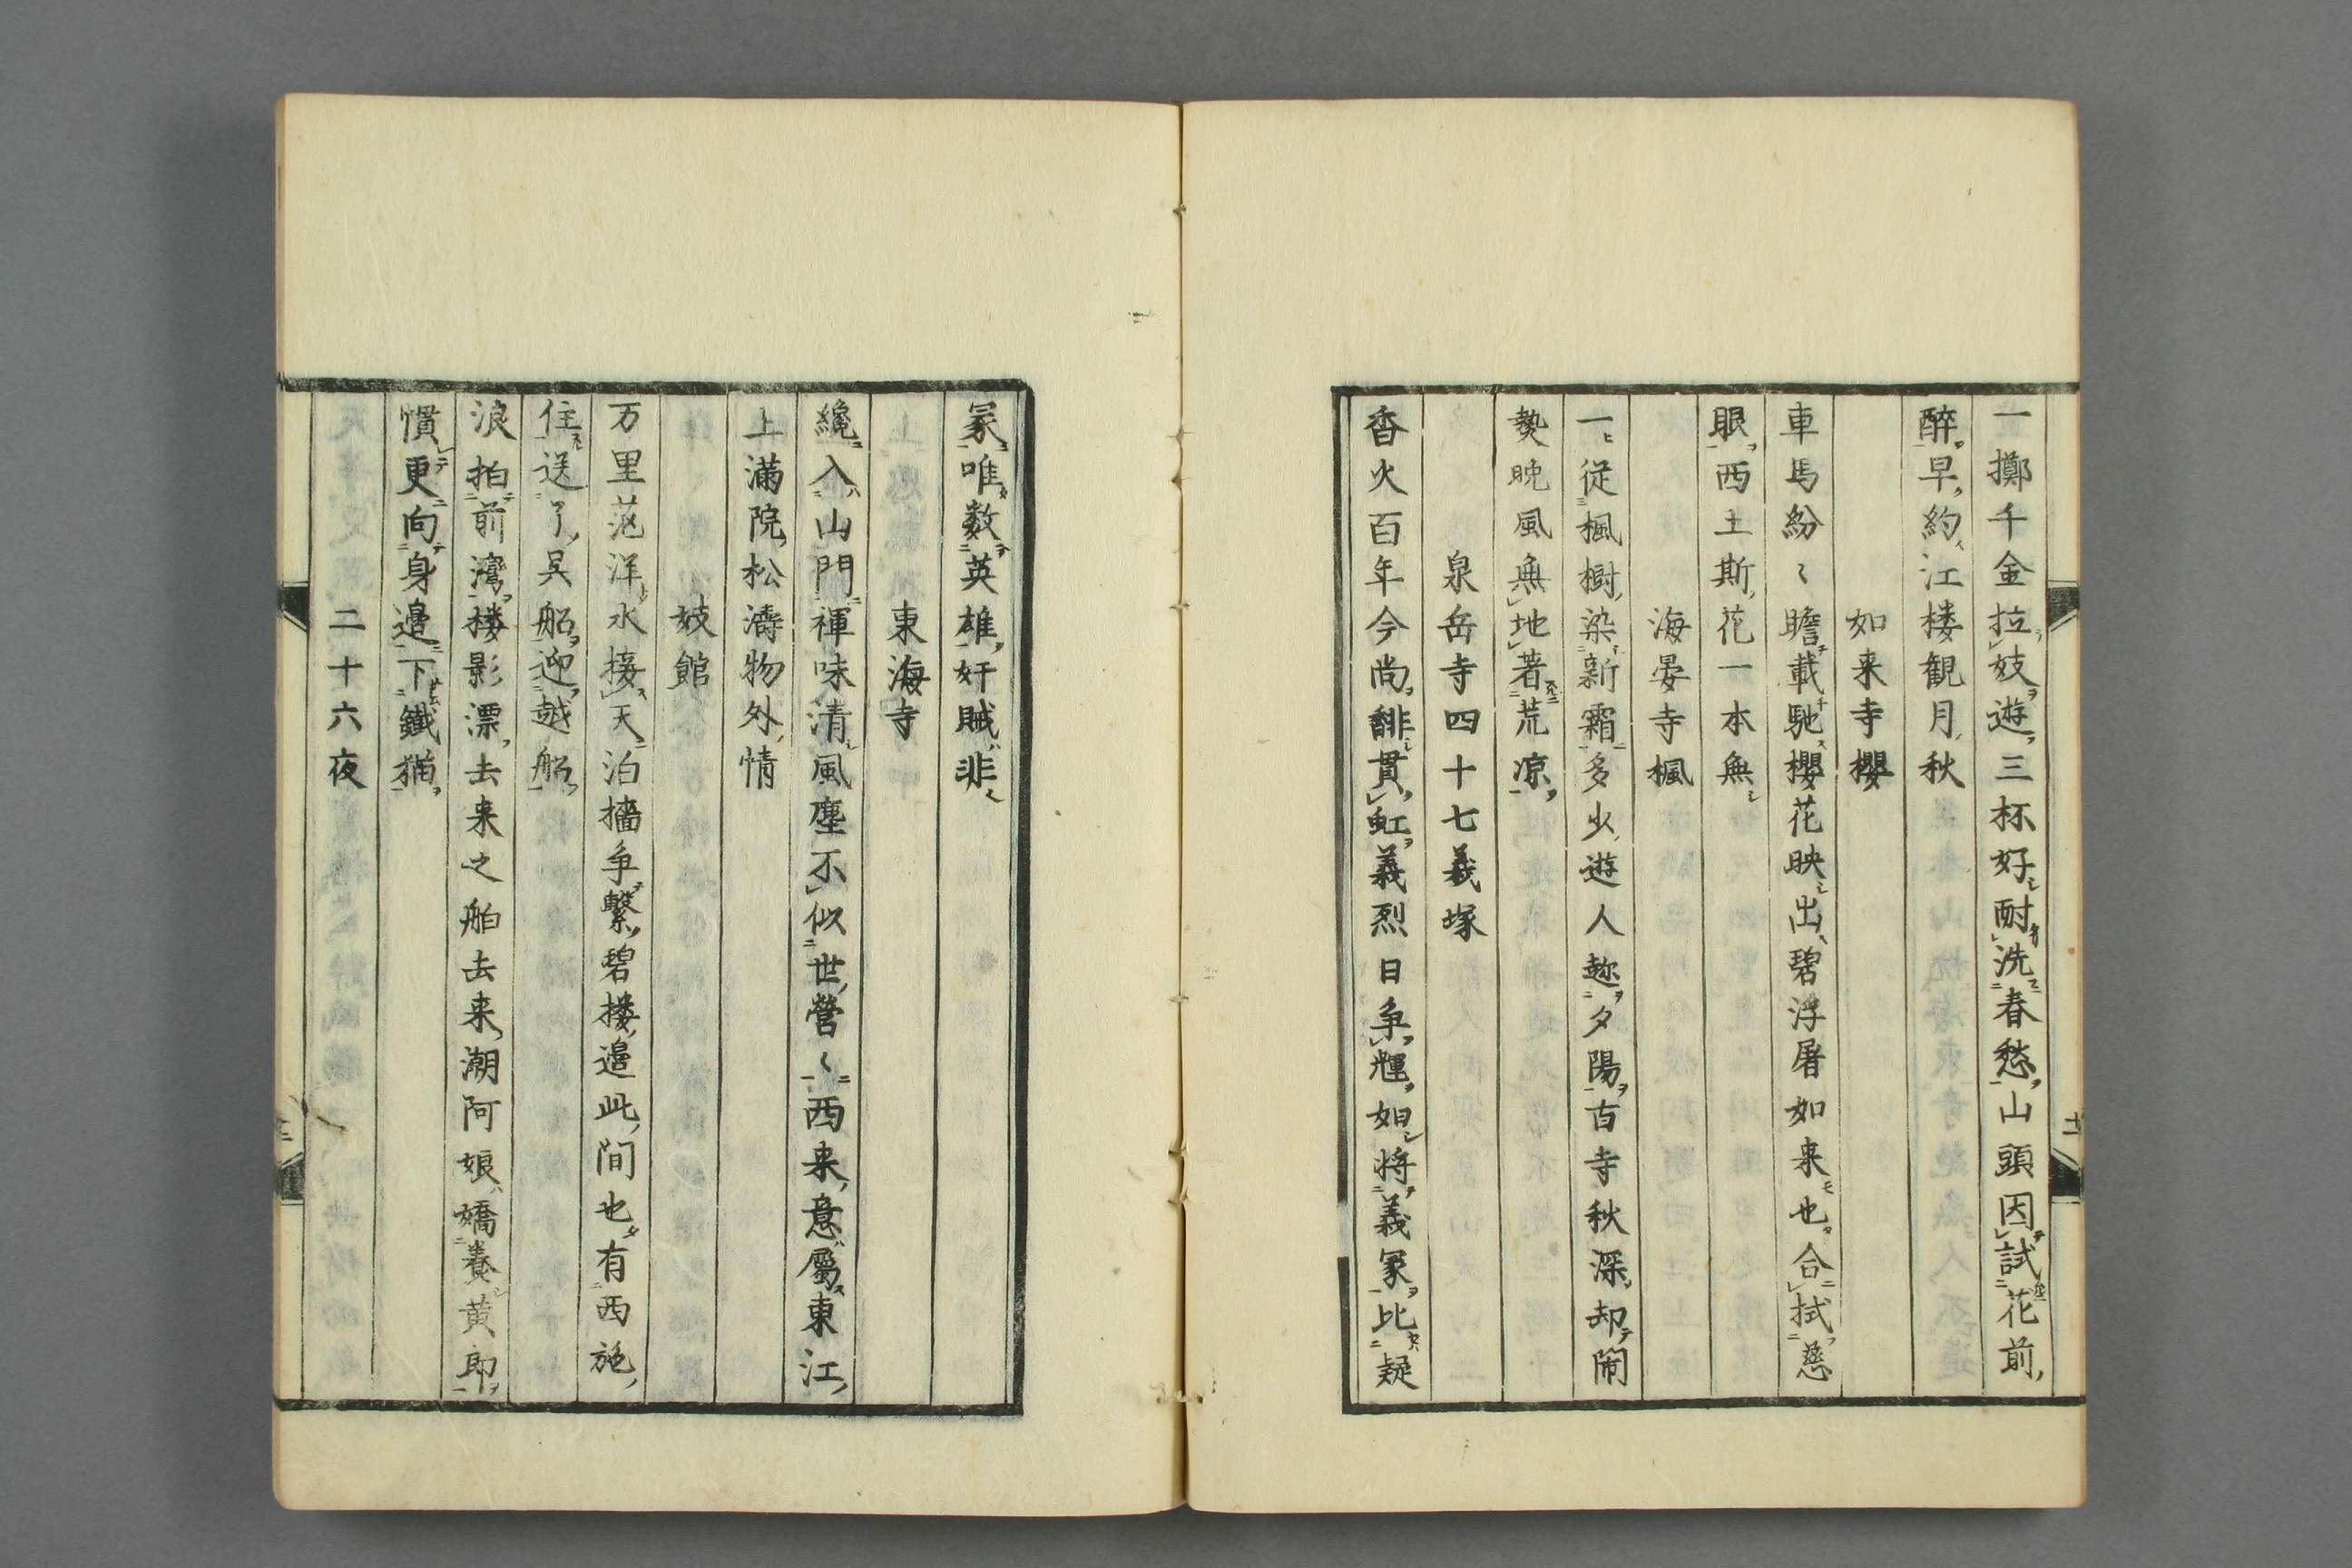 一擲千金拉妓遊三杯好耐洗春愁山頭因試花前
醉早約江楼観月秋
如来寺櫻
車馬紛〻瞻載馳櫻花映出碧浮屠如来也合拭慈
眼西土斯花一本無
海晏寺楓
一従楓樹染新霜多少遊人趂夕陽百寺秋深却閙
𤍠晩風無地著荒凉
泉岳寺四十七義塚
香火百年今尚馡貫虹義烈日争輝如将義冢比疑
冢唯数英雄奸賊非
東海寺
纔入山門禅味清風塵不似世営〻西来意属東江
上満院松濤物外情
妓館
万里茫洋水接天泊檣争繋碧楼邉此間也有西施
住送了呉船迎越船
浪拍前湾楼影漂去来之舶去来潮阿娘嬌養黄郎
慣更向身邉下鐵猫
二十六夜